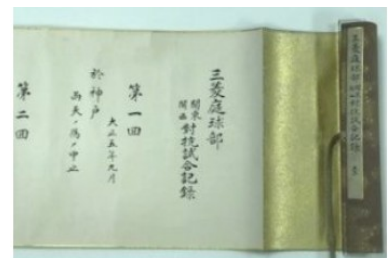 三菱庭球部對抗試合記録
三菱庭球部
関東
関西
對抗試合記録
第一回
大正五年九月
於神戸
雨天ノ為メ中止
第二回